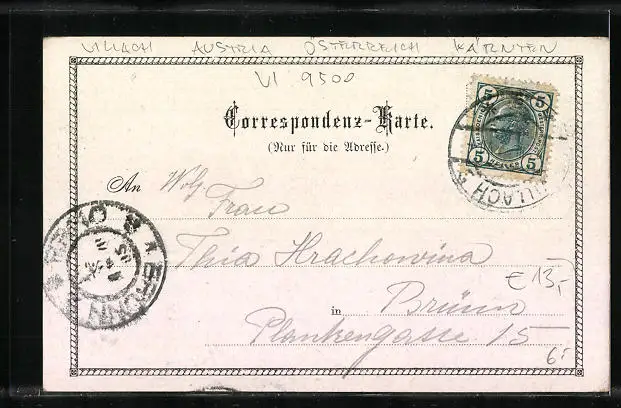 VILLACH AUSTRIA ÖSTERREICH KÄRNTEN
VI 9500
5 5
5 5
VILLACH
Correspondenz-Karte.
(Nur für die Adresse.)
An Wolg. Frau
Thia Hrachowina
in Brünn
Plankengasse 15
€ 13,-
6,-
BRÜNN
BRNO